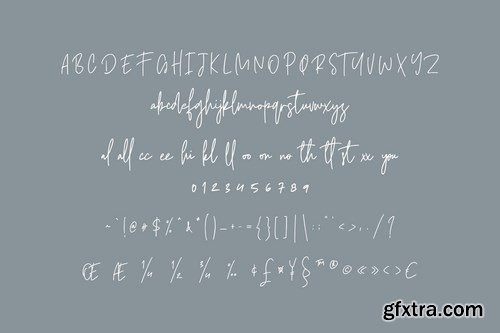 ABCDEFGHIJKLMNOPQRSTUVWXYZ
abcdefghijklmnopqrstuvwxyz
al all cc ee hi kl ll oo on no th tl st xx you
0123456789
~`!@#$%^&*()_+-={}[]|\:;"'<>,./?
Œ Æ ¼ ½ ¾ ‰ ¢£¤¥§™®©«»‹›€
gfxtra.com